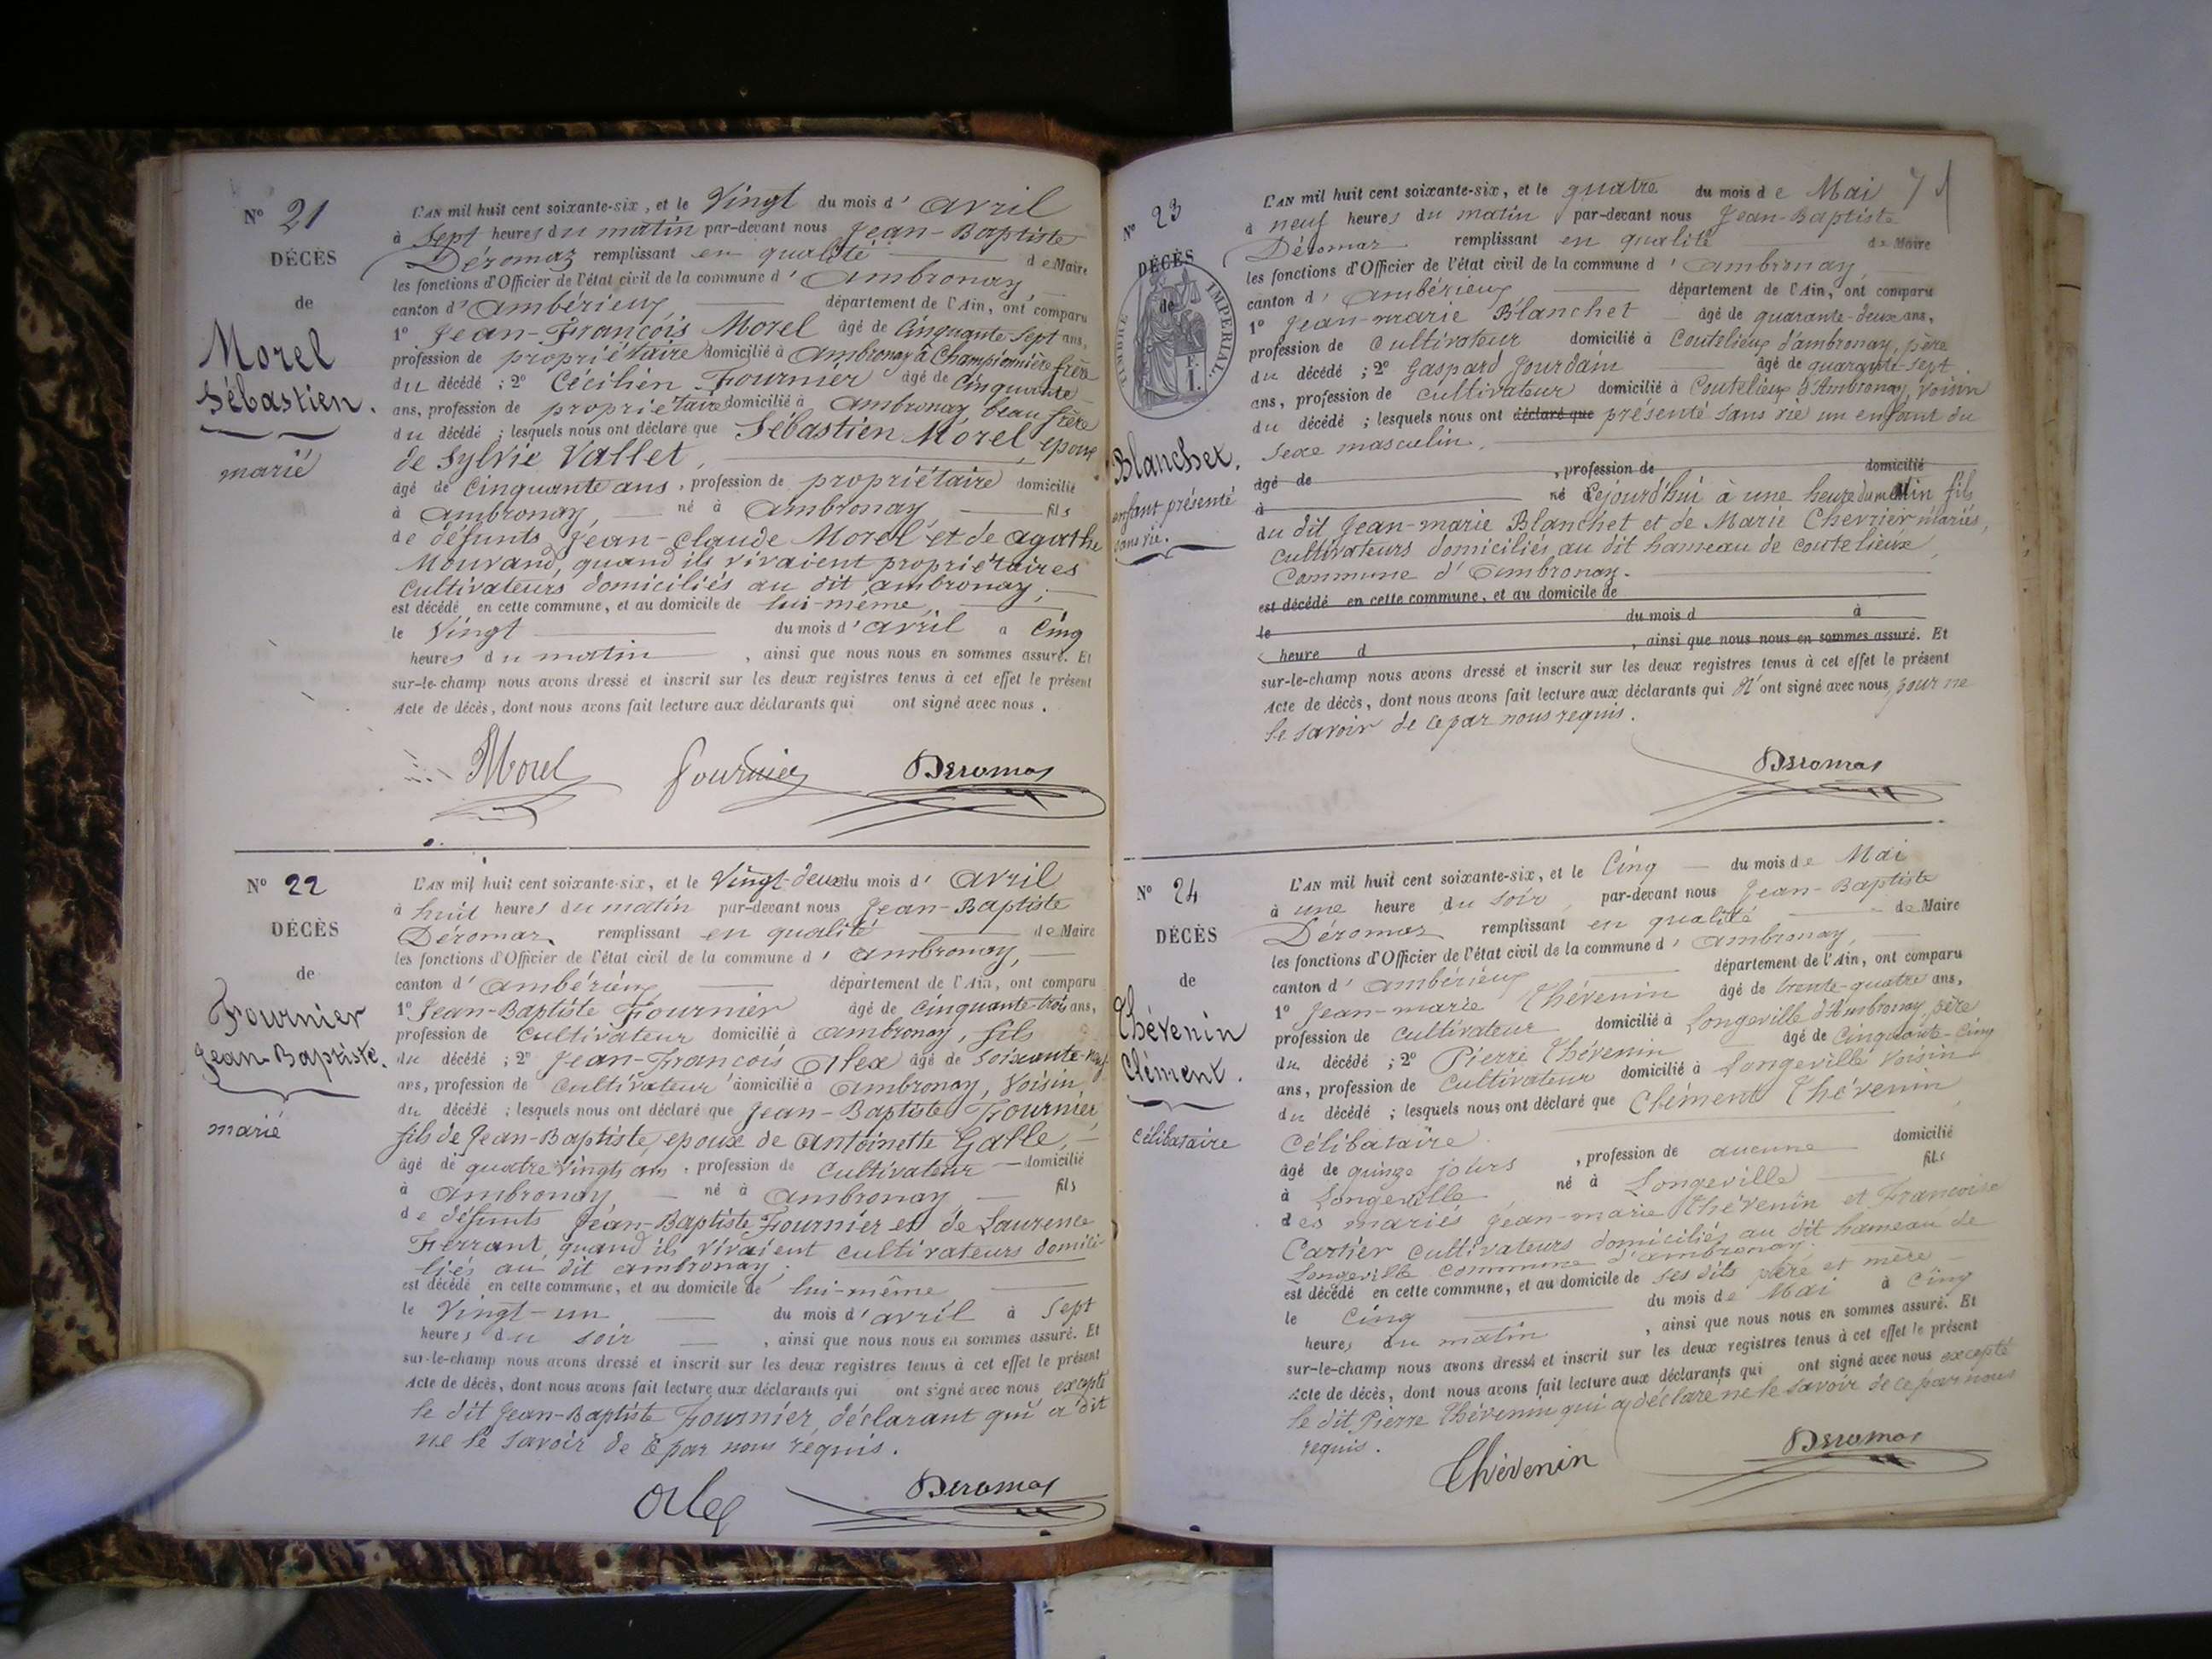 N° 21
DÉCÈS
de
Morel
Sébastien.
marié
L'AN mil huit cent soixante-six, et le Vingt du mois d' avril
à Sept heures du matin par-devant nous Jean-Baptiste
Déromas remplissant en qualité de Maire
les fonctions d'Officier de l'état civil de la commune d' ambronay
canton d' ambérieux département de l'Ain, ont comparu
1° Jean-François Morel âgé de Cinquante-Sept ans,
profession de propriétaire domicilié à ambronay à Championnière frère
du décédé ; 2° Cécilien Fournier âgé de Cinquante
ans, profession de propriétaire domicilié à ambronay beau frère
du décédé ; lesquels nous ont déclaré que Sébastien Morel, époux
de Sylvie Vallet,
âgé de Cinquante ans, profession de propriétaire domicilié
à ambronay, né à ambronay fils
de défunts Jean-Claude Morel et de agathe
Mouvand, quand ils vivaient propriétaires
cultivateurs domiciliés au dit ambronay;
est décédé en cette commune, et au domicile de lui-même,
le Vingt du mois d' avril a Cinq
heures du matin, ainsi que nous nous en sommes assuré. Et
sur-le-champ nous avons dressé et inscrit sur les deux registres tenus à cet effet le présent
Acte de décès, dont nous avons fait lecture aux déclarants qui ont signé avec nous.
Morel Fournier Deromas
N° 22
DÉCÈS
de
Fournier
Jean-Baptiste.
marié
L'AN mil huit cent soixante-six, et le Vingt-deux du mois d' avril
à huit heures du matin par-devant nous Jean-Baptiste
Déromas remplissant en qualité de Maire
les fonctions d'Officier de l'état civil de la commune d' ambronay,
canton d' ambérieux département de l'Ain, ont comparu
1° Jean-Baptiste Fournier âgé de cinquante-trois ans,
profession de Cultivateur domicilié à ambronay, fils
du décédé ; 2° Jean-François Alex âgé de soixante-neuf
ans, profession de Cultivateur domicilié à ambronay, Voisin
du décédé ; lesquels nous ont déclaré que Jean-Baptiste Fournier
fils de Jean-Baptiste, époux de antoinette Galle,
âgé de quatre vingts ans, profession de Cultivateur domicilié
à ambronay né à ambronay fils
de défunts Jean-Baptiste Fournier et de Laurence
Ferrant, quand ils vivaient cultivateurs domici-
liés au dit ambronay;
est décédé en cette commune, et au domicile de lui-même
le Vingt-un du mois d' avril à Sept
heures du soir, ainsi que nous nous en sommes assuré. Et
sur-le-champ nous avons dressé et inscrit sur les deux registres tenus à cet effet le présent
Acte de décès, dont nous avons fait lecture aux déclarants qui ont signé avec nous excepté
le dit Jean-Baptiste Fournier, déclarant qui a dit
ne le savoir de ce par nous requis.
Alex Deromas
N° 23
DÉCÈS
de
TIMBRE IMPERIAL
F.
1.
Blanchet.
enfant présenté
sans vie.
L'AN mil huit cent soixante-six, et le quatre du mois de Mai
à neuf heures du matin par-devant nous Jean-Baptiste
Déromas remplissant en qualité de Maire
les fonctions d'Officier de l'état civil de la commune d' ambronay,
canton d' ambérieux département de l'Ain, ont comparu
1° Jean-marie Blanchet âgé de quarante-deux ans,
profession de Cultivateur domicilié à Coutelieux d'ambronay, père
du décédé ; 2° Gaspard Jourdain âgé de quarante-sept
ans, profession de cultivateur domicilié à Coutelieux d'Ambronay, Voisin
du décédé ; lesquels nous ont déclaré que présenté sans vie un enfant du
sexe masculin.
âgé de , profession de domicilié
à né Cejourd'hui à une heure du matin fils
du dit Jean-marie Blanchet et de Marie Chevrier mariés,
cultivateurs domiciliés au dit hameau de coutelieux,
Commune d' ambronay.
est décédé en cette commune, et au domicile de
le du mois d à
heure d , ainsi que nous nous en sommes assuré. Et
sur-le-champ nous avons dressé et inscrit sur les deux registres tenus à cet effet le présent
Acte de décès, dont nous avons fait lecture aux déclarants qui n'ont signé avec nous pour ne
le savoir de ce par nous requis.
Deromas
N° 24
DÉCÈS
de
Thévenin
Clément.
célibataire
L'AN mil huit cent soixante-six, et le Cinq du mois de Mai
à une heure du soir, par-devant nous Jean-Baptiste
Déromas remplissant en qualité de Maire
les fonctions d'Officier de l'état civil de la commune d' ambronay,
canton d' ambérieux département de l'Ain, ont comparu
1° Jean-marie Thévenin âgé de trente-quatre ans,
profession de cultivateur domicilié à Longeville d'Ambronay, père
du décédé ; 2° Pierre Thévenin âgé de Cinquante-Cinq
ans, profession de Cultivateur domicilié à Longeville Voisin
du décédé ; lesquels nous ont déclaré que Clément Thévenin,
Célibataire
âgé de quinze jours, profession de aucune domicilié
à Longeville, né à Longeville fils
des mariés Jean-marie Thévenin et Françoise
Cartier cultivateurs domiciliés au dit hameau de
Longeville commune d'ambronay.
est décédé en cette commune, et au domicile de ses dits père et mère
le Cinq du mois de Mai à Cinq
heures du matin, ainsi que nous nous en sommes assuré. Et
sur-le-champ nous avons dressé et inscrit sur les deux registres tenus à cet effet le présent
Acte de décès, dont nous avons fait lecture aux déclarants qui ont signé avec nous excepté
le dit Pierre Thévenin qui a déclaré ne le savoir de ce par nous
requis.
Thévenin Deromas